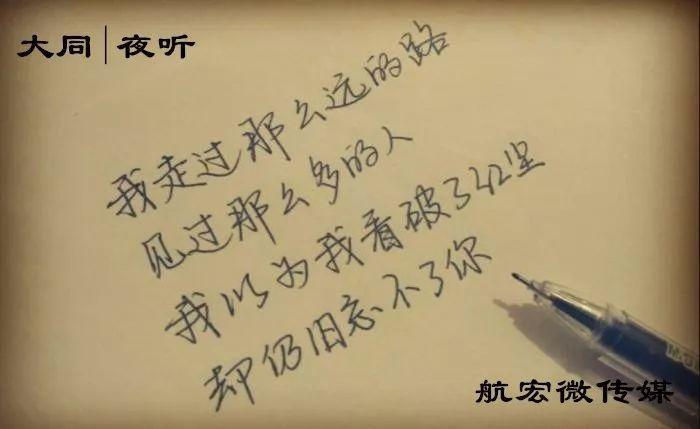 大同|夜听
我走过那么远的路
见过那么多的人
我以为我看破了红尘
却仍旧忘不了你
航宏微传媒